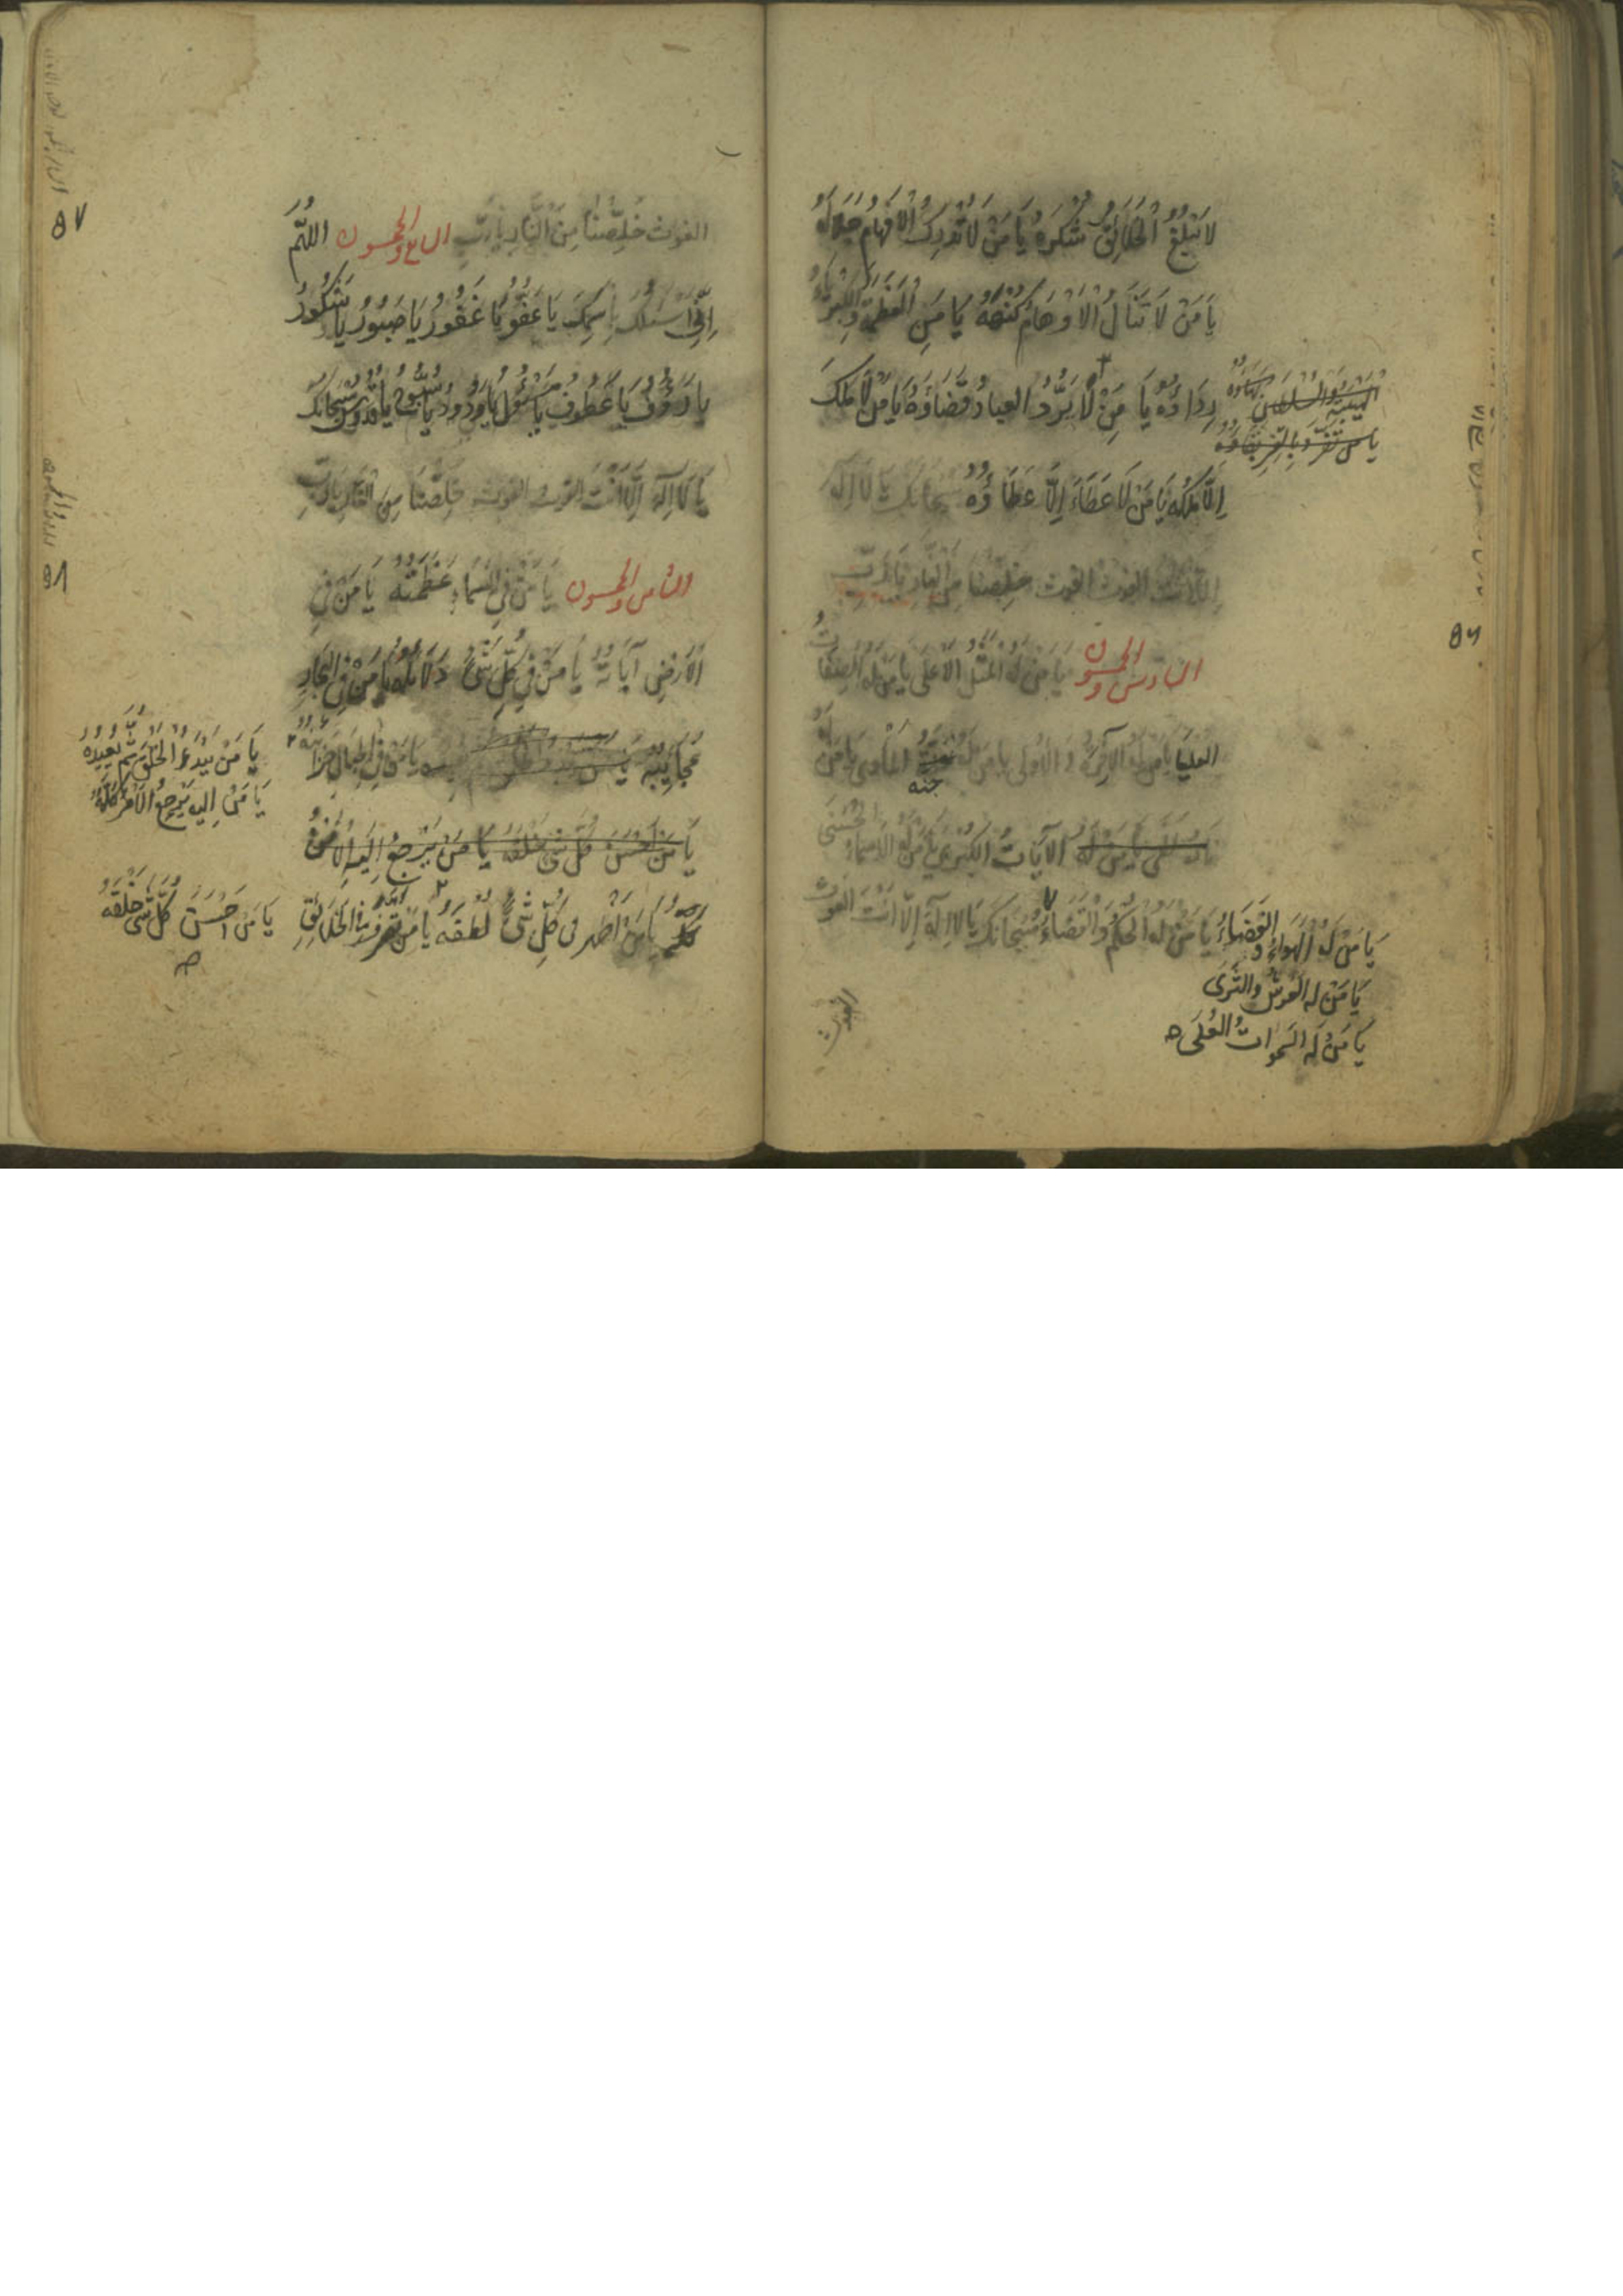 لَا تَبْلُغُ الْخَلَائِقُ شُكْرَهُ يَا مَنْ لَا تُدْرِكُ الْاَفْهَامُ جَلَالَهُ
يَا مَنْ لَا تَنَالُ الْاَوْهَامُ كُنْهَهُ يَا مَنِ الْعَظَمَةُ وَالْكِبْرِيَاءُ
رِدَاؤُهُ يَا مَنْ لَا يَرُدُّ العِبَادُ قَضَاؤَهُ يَا مَنْ لَا مُلْكَ
اِلَّا مُلْكُهُ يَا مَنْ لَا عَطَاءَ اِلَّا عَطَاؤُهُ سُبْحَانَكَ يَا لَا اِلَهَ
اِلَّا اَنْتَ الغوث الغوث خَلِّصْنَا مِنَ النَّارِ يَا رَبِّ
السادس والخمسون يَا مَنْ لَهُ الْمَثَلُ الْاَعْلَى يَا مَنْ لَهُ الصِّفَاتُ
العليا يَا مَنْ لَهُ الْآخِرَةُ وَ الْاُولى يَا مَنْ لَهُ جنه الْمَاْوى يَا مَنْ
يَا مَنْ لَهُ الْآيَاتُ الْكُبْرى يَا مَنْ لَهُ الْاَسْمَاءُ الْحُسْنَى
يَا مَنْ لَهُ الْحُكْمُ وَالْقَضَاءُ سُبْحَانَكَ يَا لَا اِلَهَ اِلَّا اَنْتَ الغَوْث
يَا مَنْ لَهُ الْهَوَاءُ وَ الْفَضَاءُ
يَا مَنْ لَهُ الْعَرْشُ وَالثَّرَى
يَا مَنْ لَهُ السَّمَوَاتُ الْعُلَى
الغوث
٥٦
الغوث خَلِّصْنَا مِنَ النَّارِ يَا رَبِّ السابع والخمسون اللّٰهُمَّ
اِنِّي اَسْئَلُكَ بِاسْمِكَ يَا عَفُوُّ يَا غَفُورُ يَا صَبُورُ يَا شَكُورُ
يَا رَؤُفُ يَا عَطُوفُ يَا مَسْئُولُ يَا وَدُودُ يَا سُبُّوحُ يَا قُدُّوسُ سُبْحَانَكَ
يَا لَا اِلَهَ اِلَّا اَنْتَ الغوث الغوث خَلِّصْنَا مِنَ النَّارِ يَا رَبِّ
الثامن والخمسون يَا مَنْ فِي السَّمَاءِ عَظَمَتُهُ يَا مَنْ فِي
الْاَرْضِ آيَاتُهُ يَا مَنْ فِي كُلِّ شَىْءٍ دَلَائِلُهُ يَا مَنْ فِي الْبِحَارِ
عَجَايِبُهُ يَا مَنْ فِي الْجِبَالِ خَزَائِنُهُ
يَا مَنْ يَبْدَءُ الْخَلْقَ ثُمَّ يُعِيدُهُ
يَا مَنْ اِلَيْهِ يَرْجِعُ الْاَمْرُ كُلُّهُ
يَا مَنْ اَحْسَنَ كُلَّ شَىْءٍ خَلْقَهُ يَا مَنْ يَرْجِعُ اِلَيْهِ الْاَمْرُ
كُلُّهُ يَا مَنْ اَظْهَرَ فى كُلِّ شَىْءٍ لُطْفَهُ يَا مَنْ تَصَرَّفَ فِي الْخَلَائِقِ
يَا مَنْ اَحْسَنَ كُلَّ شَىْءٍ خَلْقَهُ
٥٧
٥٨